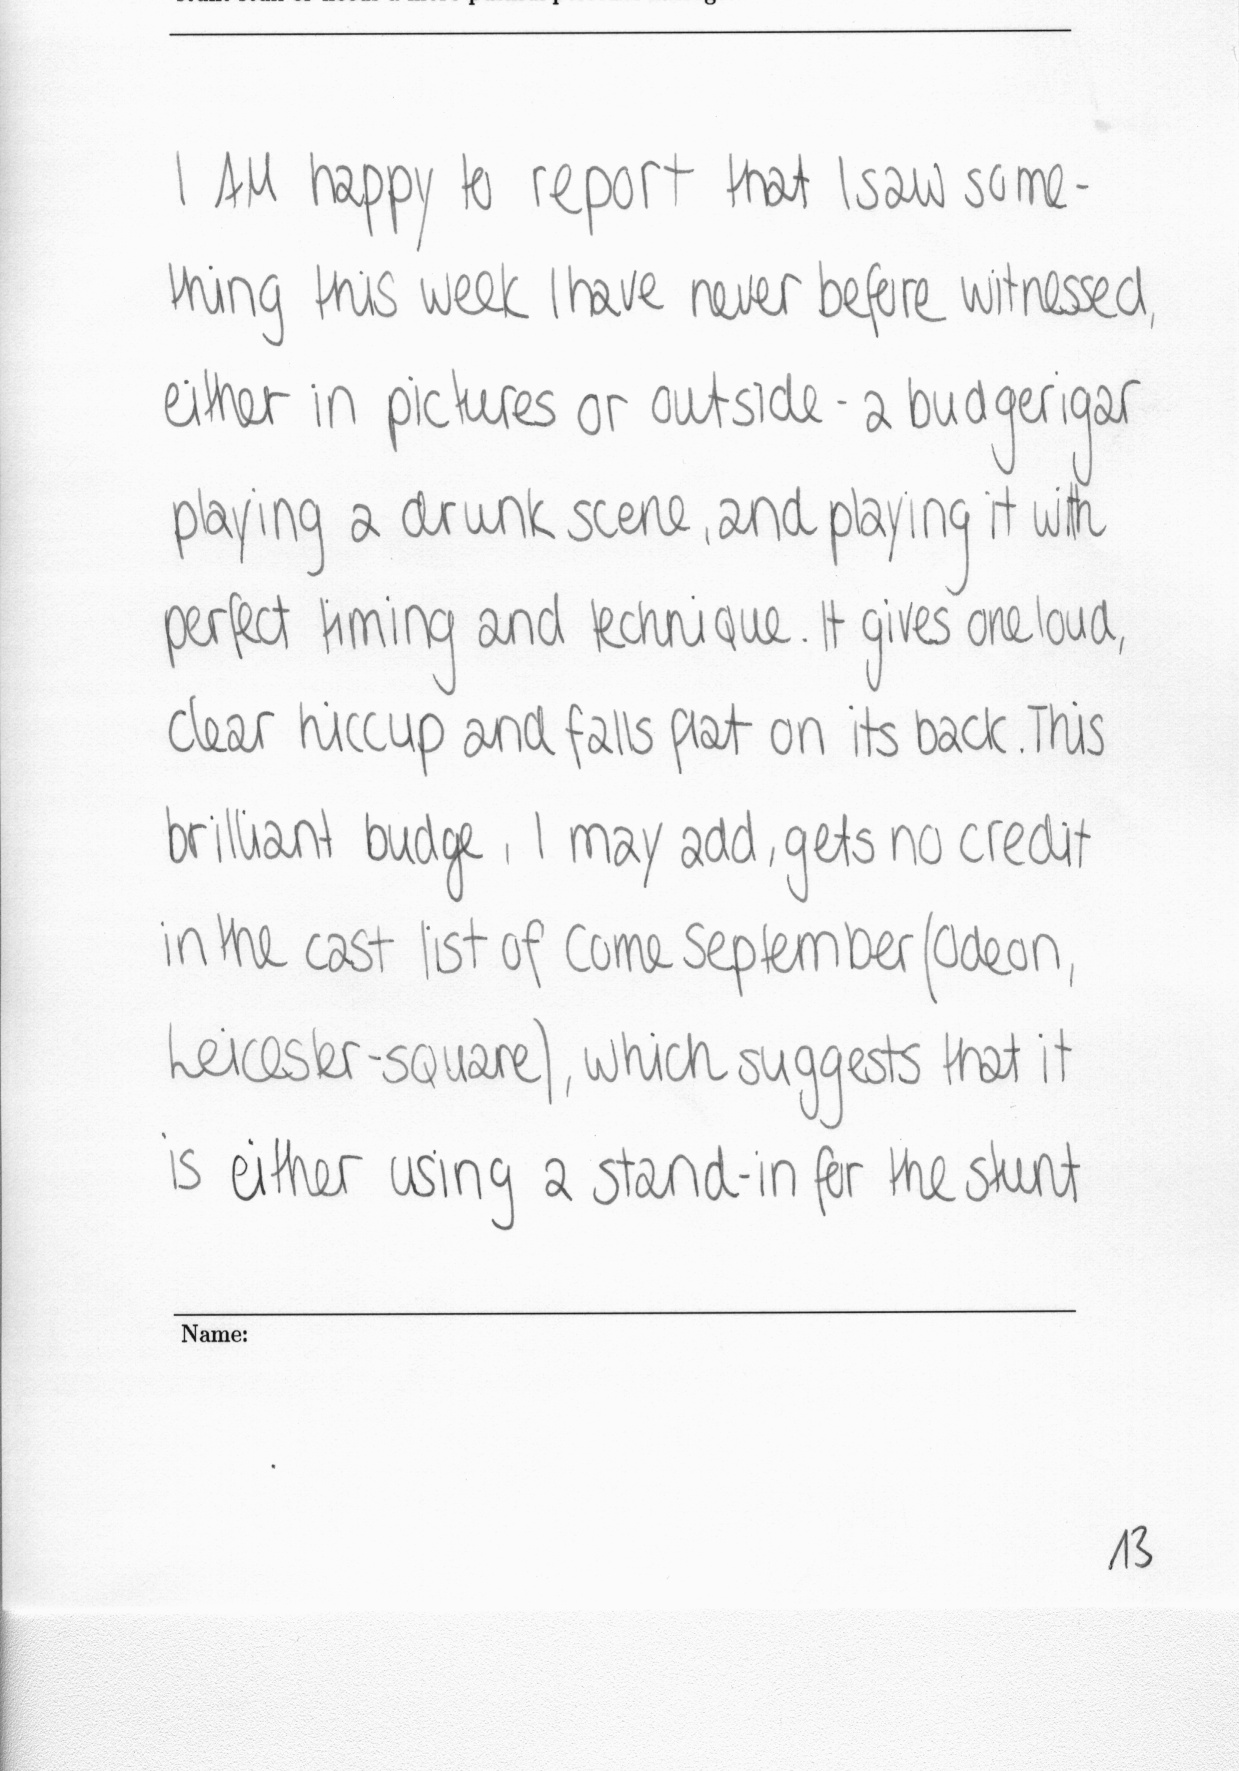 I AM happy to report that I saw some-
thing this week I have never before witnessed,
either in pictures or outside - a budgerigar
playing a drunk scene, and playing it with
perfect timing and technique. It gives one loud,
clear hiccup and falls flat on its back. This
brilliant budge, I may add, gets no credit
in the cast list of Come September (Odeon,
Leicester-square), which suggests that it
is either using a stand-in for the stunt
Name:
13